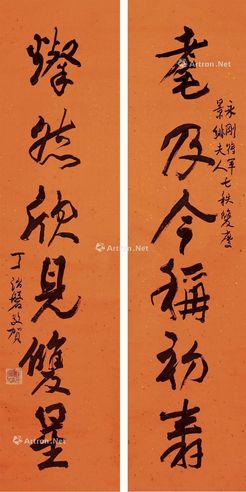 永剛將軍七秩雙慶
景綿夫人
耄及今稱初壽
燦然欣見雙星
丁治磐敬賀
Artron.Net
Artron.Net
Artron.Net
Artron.Net
Artron.Net